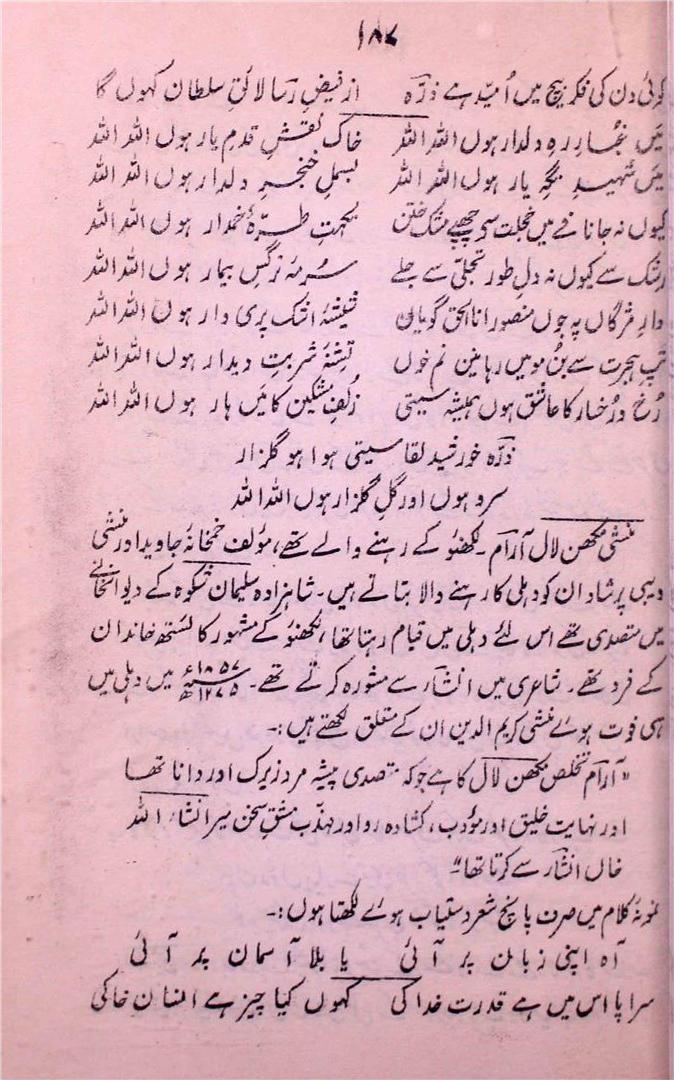 ۱۸۷
کوئی دن کی فکر ہیچ میں اُمیّد ہے ذرّہ از فیضِ رسا لائقِ سلطان کہوں گا
میں غبارِ رہِ دلدار ہوں اللہ اللہ خاک نقشِ قدمِ یار ہوں اللہ اللہ
میں شہیدِ نگہِ یار ہوں اللہ اللہ بسملِ خنجرِ دلدار ہوں اللہ اللہ
کیوں نہ جاناں نے میں خجلت سو چھپے مشک ختن نکہتِ طرّۂ خمدار ہوں اللہ اللہ
رشک سے کیوں نہ دلِ طور تجلّی سے جلے سرمۂ نرگسِ بیمار ہوں اللہ اللہ
دارِ مژگاں پہ جوں منصور انا الحق گویاں شیشۂ اشک پری دار ہوں اللہ اللہ
تپِ ہجرت سے بُنِ مو میں رہا نین نم خوں تشنۂ شربتِ دیدار ہوں اللہ اللہ
رُخ و رُخسار کا عاشق ہوں ہمیشہ سیتی زُلفِ مشکین کا میں ہار ہوں اللہ اللہ
ذرّہ خورشید لقا سیتی ہوا ہو گلزار
سرو ہوں اور گلِ گلزار ہوں اللہ اللہ
منشی مکھن لال آرام ۔ لکھنؤ کے رہنے والے تھے، مؤلف خمخانۂ جاوید اور منشی
دیبی پرشاد ان کو دہلی کا رہنے والا بتاتے ہیں۔ شاہزادہ سلیمان شکوہ کے دیوانخانے
میں متصدی تھے اس لئے دہلی میں قیام رہتا تھا، لکھنؤ کے مشہور کائستھ خاندان
کے فرد تھے۔ شاعری میں انشاؔر سے مشورہ کرتے تھے۔ ۱۸۵۷ء ۱۲۷۵ھ میں دہلی میں
ہی فوت ہوئے منشی کریم الدین ان کے متعلق لکھتے ہیں:۔
"آرام تخلص مکھن لال کا ہے جو کہ متصدی پیشہ مرد زیرک اور دانا تھا
اور نہایت خلیق اور مؤدب، کشادہ رو اور مہذب مشقِ سخن میر انشاء اللہ
خاں انشاؔر سے کرتا تھا"۔
نمونۂ کلام میں صرف پانچ شعر دستیاب ہوئے لکھتا ہوں:۔
آہ اپنی زبان پر آئی یا بلا آسمان پر آئی
سراپا اس میں ہے قدرت خدا کی کہوں کیا چیز ہے انسانِ خاکی